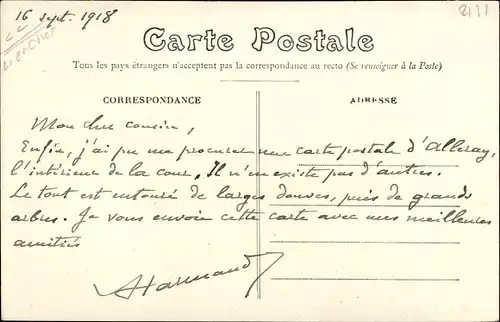 16 sept. 1918
2111
Carte Postale
Tous les pays étrangers n'acceptent pas la correspondance au recto (Se renseigner à la Poste)
CORRESPONDANCE
ADRESSE
Mon cher cousin,
Enfin, j'ai pu me procurer une carte postale d'Alleray,
l'intérieur de la cour. Il n'en existe pas d'autres.
Le tout est entouré de larges douves, près de grands
arbres. Je vous envoie cette carte avec mes meilleures
amitiés